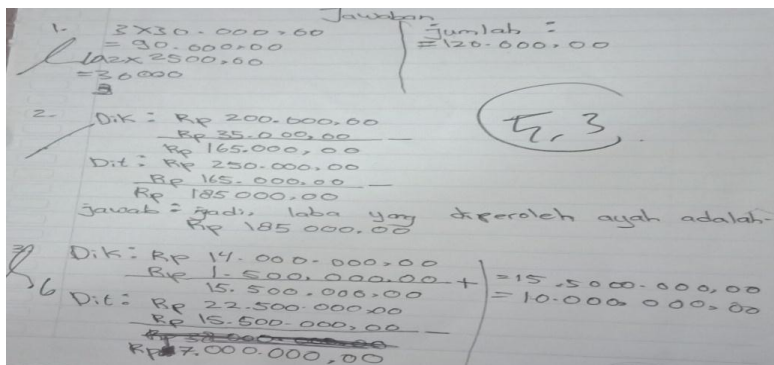 Jawaban
1. 3 x 30.000,00
= 90.000,00
12 x 2500,00
= 30000
jumlah :
= 120.000,00
5,3
2. Dik : Rp 200.000,00
Rp 35.000,00 —
Rp 165.000,00
Dit : Rp 250.000,00
Rp 165.000,00 —
Rp 185000,00
jawab = jadi, laba yang diperoleh ayah adalah-
Rp 185 000,00
3. Dik : Rp 14.000.000,00
Rp 1.500.000,00 +
15.500.000,00
6
Dit : Rp 22.500.000,00
Rp 15.500.000,00 —
Rp 7.000.000,00
= 15.5000.000,00
= 10.000 000,00